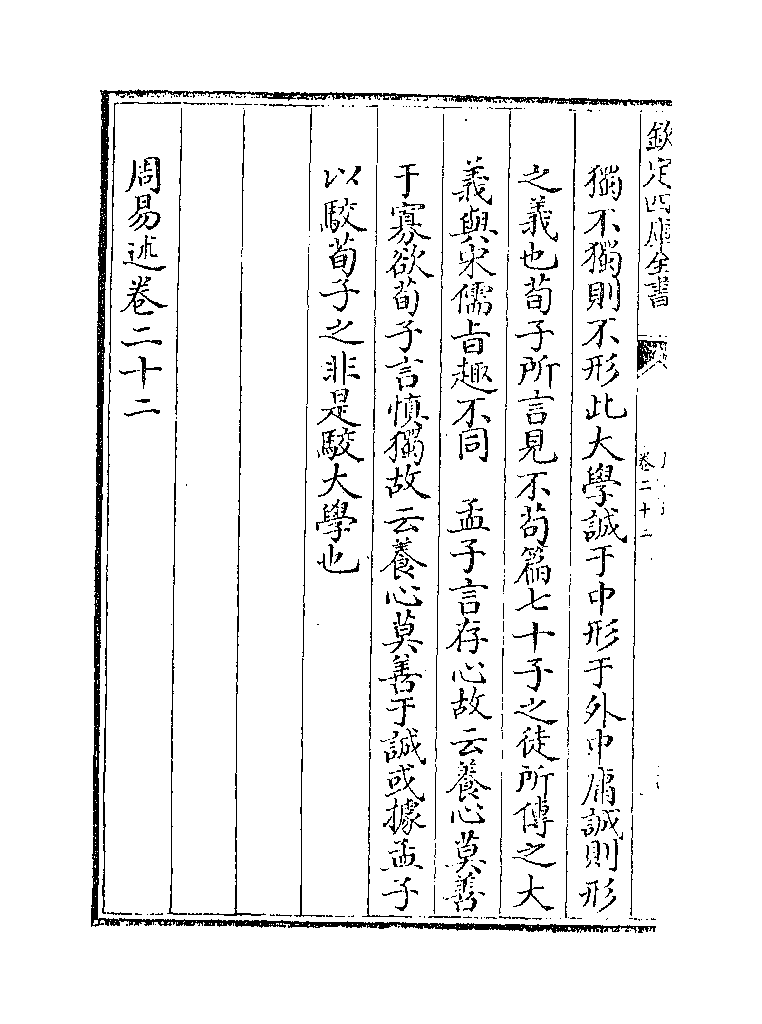 欽定四庫全書
卷二十二
獨不獨則不形此大學誠于中形于外中庸誠則形
之義也荀子所言見不茍篇七十子之徒所傳之大
義與宋儒旨趣不同　孟子言存心故云養心莫善
于寡欲荀子言慎獨故云養心莫善于誠或據孟子
以駮荀子之非是駮大學也
周易述卷二十二